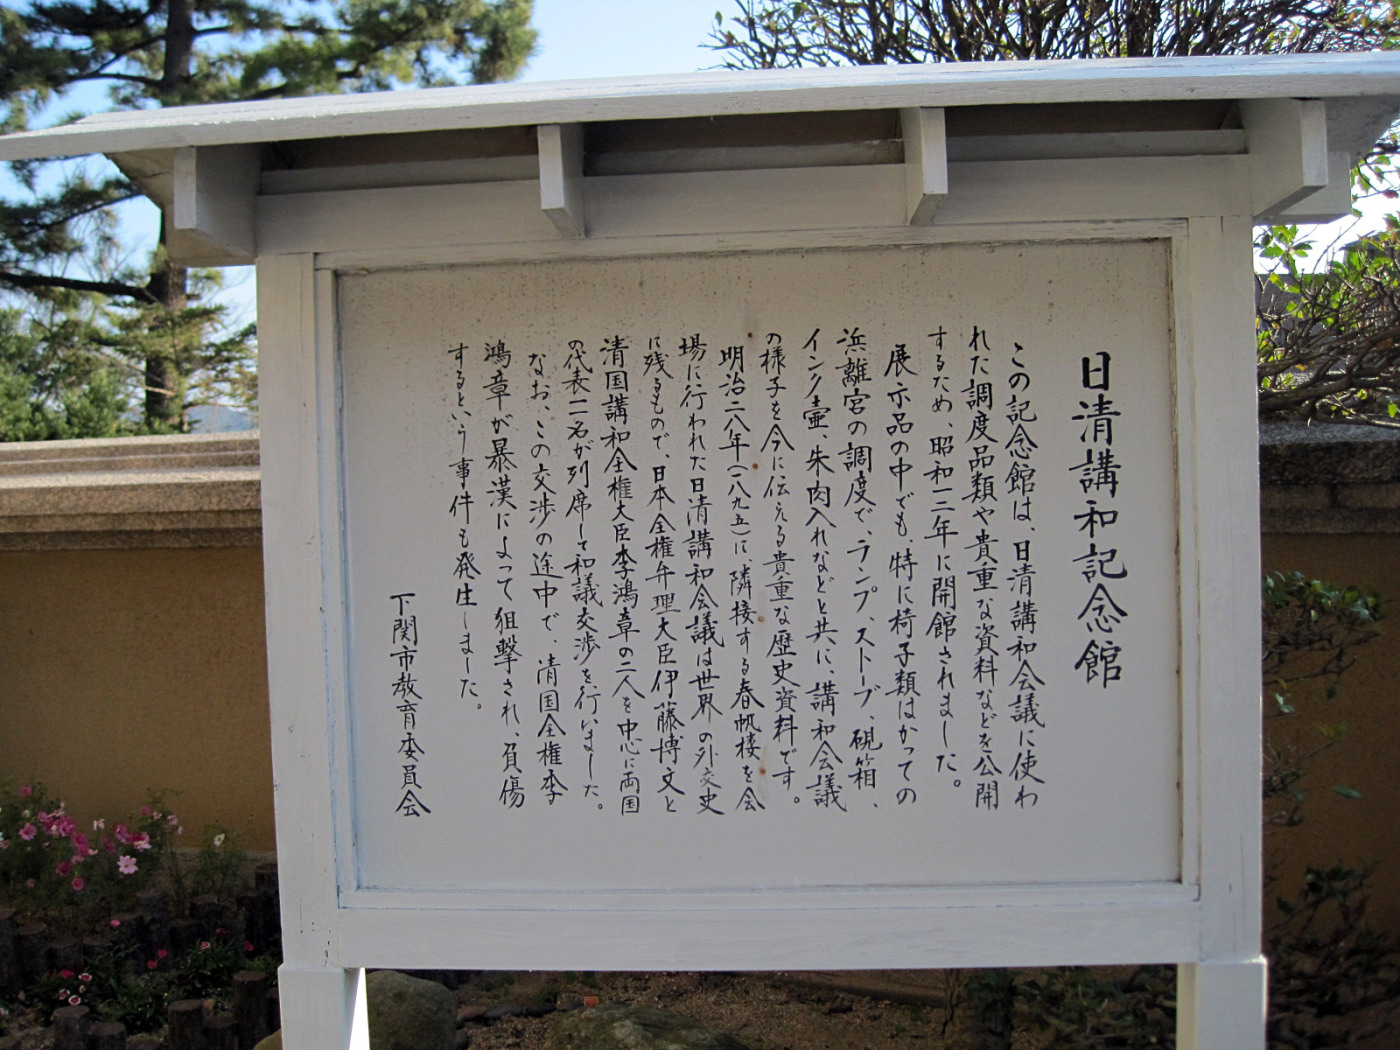 日清講和記念館
この記念館は、日清講和会議に使わ
れた調度品類や貴重な資料などを公開
するため、昭和十二年に開館されました。
展示品の中でも、特に椅子類はかつての
浜離宮の調度で、ランプ、ストーブ、硯箱、
インク壷、朱肉入れなどと共に、講和会議
の様子を今に伝える貴重な歴史資料です。
明治二八年(一八九五)に、隣接する春帆楼を会
場に行われた日清講和会議は世界の外交史
に残るもので、日本全権弁理大臣伊藤博文と
清国講和全権大臣李鴻章の二人を中心に両国
の代表一一名が列席して和議交渉を行いました。
なお、この交渉の途中で、清国全権李
鴻章が暴漢によって狙撃され、負傷
するという事件も発生しました。
下関市教育委員会